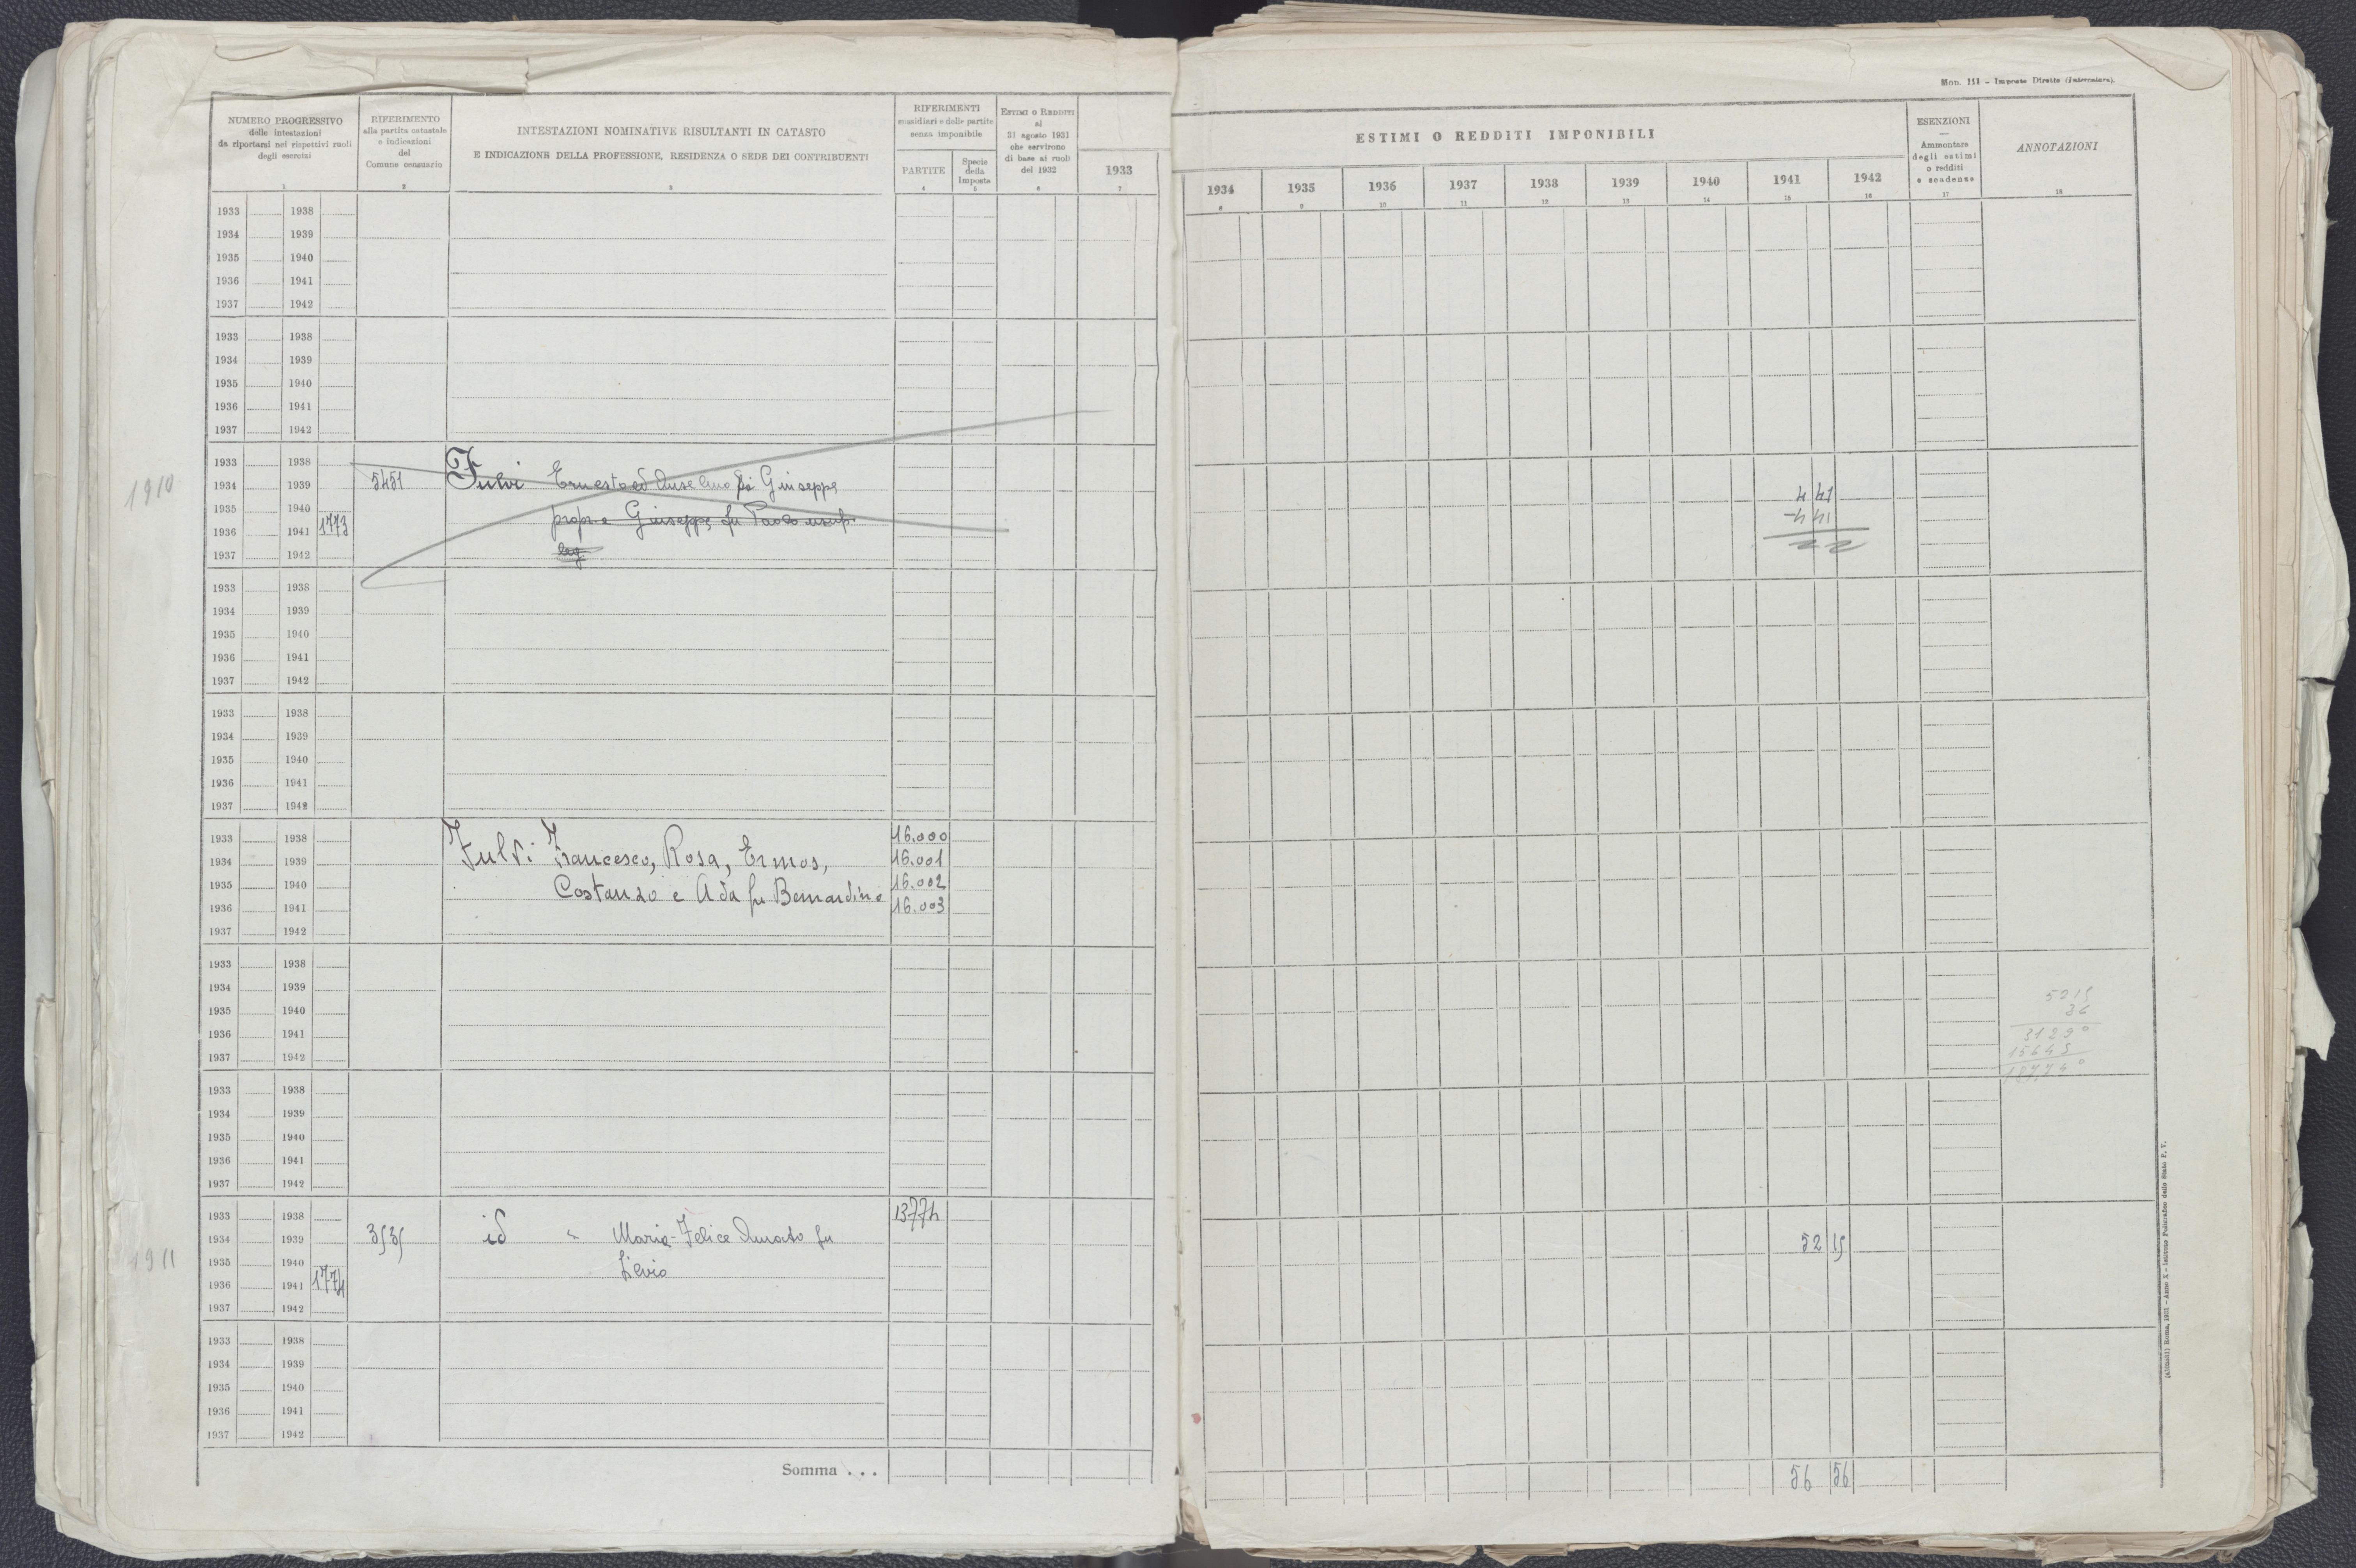 Mod. 111 - Imposte Dirette (Intercalare).
NUMERO PROGRESSIVO
delle intestazioni
da riportarsi nei rispettivi ruoli
degli esercizi
1
RIFERIMENTO
alla partita catastale
e indicazioni
del
Comune censuario
2
INTESTAZIONI NOMINATIVE RISULTANTI IN CATASTO
E INDICAZIONE DELLA PROFESSIONE, RESIDENZA O SEDE DEI CONTRIBUENTI
3
RIFERIMENTI
sussidiari e delle partite
senza imponibile
PARTITE
4
Specie
della
Imposta
5
ESTIMI O REDDITI
al
31 agosto 1931
che servirono
di base ai ruoli
del 1932
6
1933
7
ESTIMI O REDDITI IMPONIBILI
1934 1935 1936 1937 1938 1939 1940 1941 1942
8 9 10 11 12 13 14 15 16
ESENZIONI
—
Ammontare
degli estimi
o redditi
e scadenze
17
ANNOTAZIONI
18
1933 1938
1934 1939
1935 1940
1936 1941
1937 1942
1933 1938
1934 1939
1935 1940
1936 1941
1937 1942
1933 1938
1910 1934 1939 5451 Fulvi Ernesto ed Anselmo di Giuseppe 4 41
1935 1940 propr e Giuseppe fu Paolo usuf. -4 41
1936 1941 1773
1937 1942 leg.
1933 1938
1934 1939
1935 1940
1936 1941
1937 1942
1933 1938
1934 1939
1935 1940
1936 1941
1937 1942
1933 1938 16.000
1934 1939 Fulvi Francesco, Rosa, Ermos, 16.001
1935 1940 Costanzo e Ada fu Bernardino 16.002
1936 1941 16.003
1937 1942
1933 1938
1934 1939 5215
1935 1940 36
1936 1941 31290
1937 1942 15645
187740
1933 1938
1934 1939
1935 1940
1936 1941
1937 1942
1933 1938 13774
1934 1939 3535 id " Maria-Felice Amato fu 52 15
1911 1935 1940 Silvio
1936 1941 1774
1937 1942
1933 1938
1934 1939
1935 1940
1936 1941
1937 1942
Somma . . . 56 56
Roma, 1931 - Anno X - Istituto Poligrafico dello Stato P. V.